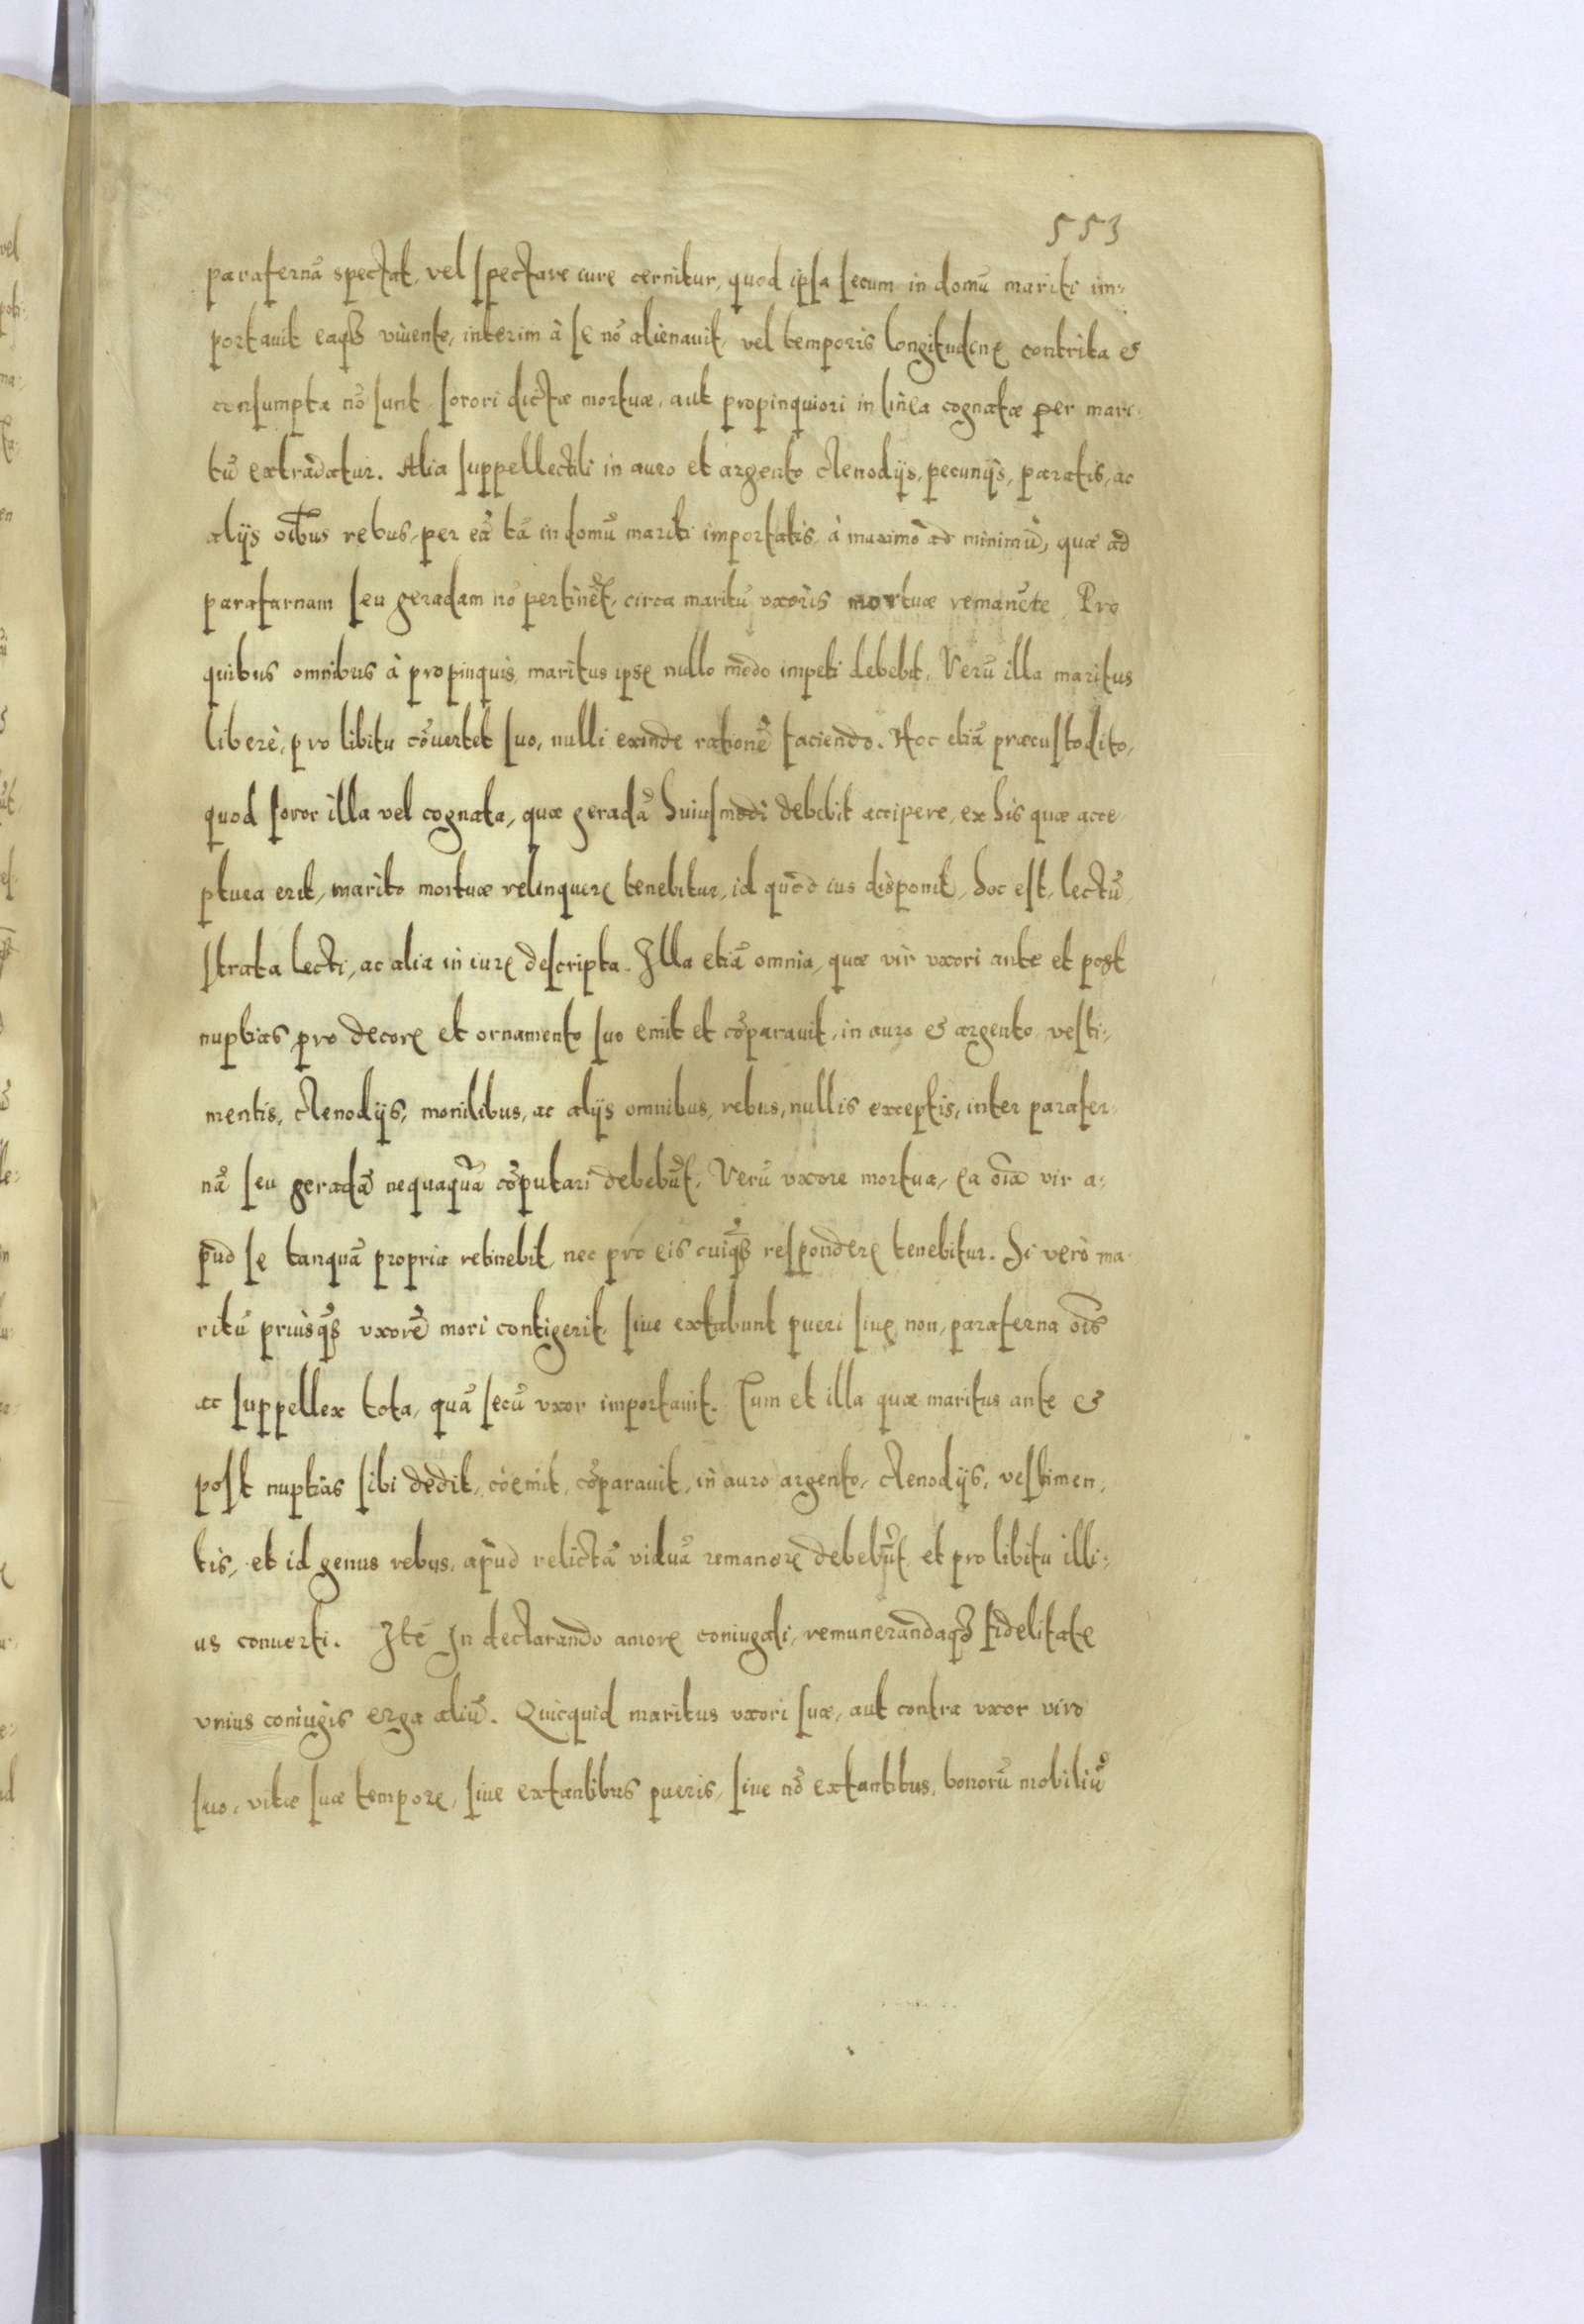 553
parafernā spectat, vel spectare iure cernitur, quod ipsa secum in domū mariti im=
portavit eaqȝ vivente, interim à se nō alienavit, vel temporis longitudine contrita &
consumpta nō sunt, sorori dictæ mortuæ, aut propinquiori in linea cognatæ per mari=
tū extradatur. Alia suppellectili in auro et argento clenodijs, pecunijs, paratis, ac
alijs oībus rebus, per eā tā in domū mariti importatis, à maximo ad minimū, quæ ad
parafarnam seu geradam nō pertinēt, circa maritū uxoris mortuæ remanēte. Pro
quibus omnibus à propinquis, maritus ipse nullo modo impeti debebit. Verū illa maritus
liberè, pro libitu cōvertet suo, nulli exinde rationē faciendo. Hoc etiā præcustodito,
quod soror illa vel cognata, quæ geradā huiusmodi debebit accipere, ex his quæ acce=
ptura erit, marito mortuæ relinquere tenebitur, id quod ius disponit, hoc est, lectū,
strata lecti, ac alia in iure descripta. Illa etiā omnia, quæ vir uxori ante et post
nuptias pro decore et ornamento suo emit et cōparavit, in auro & argento, vesti=
mentis, clenodijs, monilibus, ac alijs omnibus, rebus, nullis exceptis, inter parafer=
nā seu geradā nequaquā cōputari debebūt. Verū uxore mortua, ea oīa vir a=
pud se tanquā propria retinebit, nec pro eis cuiqȝ respondere tenebitur. Si verò ma=
ritū priusqȝ uxorē mori contigerit, sive extabunt pueri sive non, paraferna oīs
ac suppellex tota, quā secū uxor importavit. Tum et illa quæ maritus ante &
post nuptias sibi dedit, coemit, cōparavit, in auro argento, clenodijs, vestimen=
tis, et id genus rebus, apud relictā viduā remanere debebūt, et pro libitu illi=
us converti. Itē In declarando amore coniugali, remunerandaqȝ fidelitate
unius coniugis erga aliū. Quicquid maritus uxori suæ, aut contra uxor viro
suo, vitæ suæ tempore, sive extantibus pueris, sive nō extantibus, bonorū mobiliū